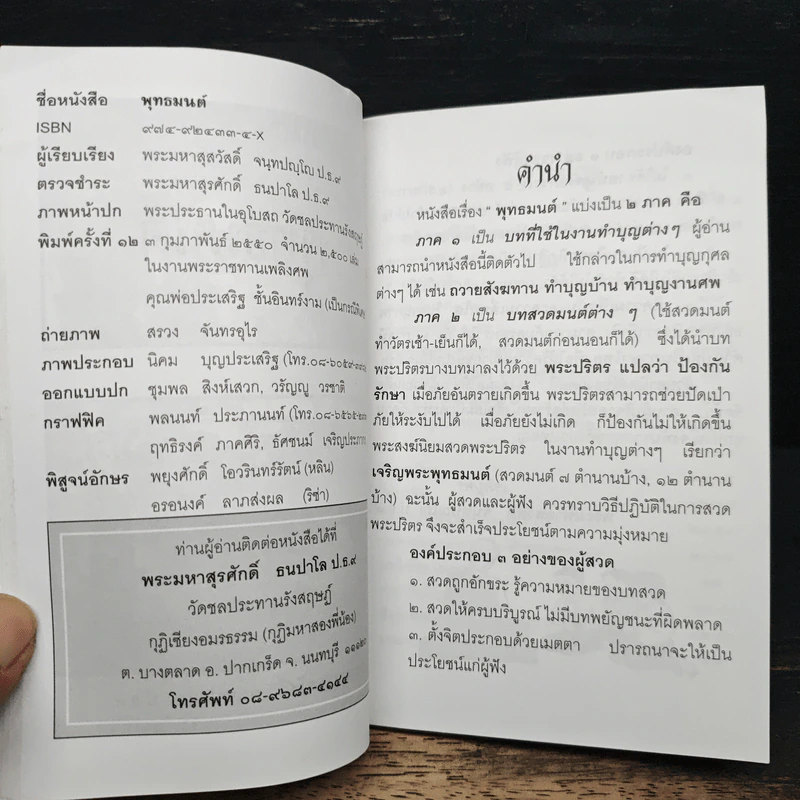 ชื่อหนังสือ พุทธมนต์
ISBN ๙๗๔-๙๒๔๓๓-๕-X
ผู้เรียบเรียง พระมหาสุสวัสดิ์ จนฺทปญฺโญ ป.ธ.๙
ตรวจชำระ พระมหาสุรศักดิ์ ธนปาโล ป.ธ.๙
ภาพหน้าปก พระประธานในอุโบสถ วัดชลประทานรังสฤษฎ์
พิมพ์ครั้งที่ ๑๒ ๓ กุมภาพันธ์ ๒๕๕๐ จำนวน ๒,๕๐๐ เล่ม
ในงานพระราชทานเพลิงศพ
คุณพ่อประเสริฐ ชั้นอินทร์งาม (เป็นกรณีพิเศษ)
ถ่ายภาพ สรวง จันทรอุไร
ภาพประกอบ นิคม บุญประเสริฐ
ออกแบบปก ชุมพล สิงห์เสวก, วรัญญู วรชาติ
กราฟฟิค พลนนท์ ประภานนท์
ฤทธิรงค์ ภาคศิริ, ธัศชนม์
พิสูจน์อักษร พยุงศักดิ์ โอวรินทร์รัตน์ (หลิน)
อรอนงค์ ลาภส่งผล (ริซ่า)
ท่านผู้อ่านติดต่อหนังสือได้ที่
พระมหาสุรศักดิ์ ธนปาโล ป.ธ.๙
วัดชลประทานรังสฤษฎ์
กุฏิเชียงอมรธรรม (กุฏิมหาสองพี่น้อง)
ต. บางตลาด อ. ปากเกร็ด จ. นนทบุรี ๑๑๑๒๐
โทรศัพท์ ๐๘-๙๖๘๓-๔๑๔๔
คำนำ
หนังสือเรื่อง " พุทธมนต์ " แบ่งเป็น ๒ ภาค คือ
ภาค ๑ เป็น บทที่ใช้ในงานทำบุญต่างๆ ผู้อ่าน
สามารถนำหนังสือนี้ติดตัวไป ใช้กล่าวในการทำบุญกุศล
ต่างๆ ได้ เช่น ถวายสังฆทาน ทำบุญบ้าน ทำบุญงานศพ
ภาค ๒ เป็น บทสวดมนต์ต่าง ๆ (ใช้สวดมนต์
ทำวัตรเช้า-เย็นก็ได้, สวดมนต์ก่อนนอนก็ได้) ซึ่งได้นำบท
พระปริตรบางบทมาลงไว้ด้วย พระปริตร แปลว่า ป้องกัน
รักษา เมื่อภัยอันตรายเกิดขึ้น พระปริตรสามารถช่วยปัดเป่า
ภัยให้ระงับไปได้ เมื่อภัยยังไม่เกิด ก็ป้องกันไม่ให้เกิดขึ้น
พระสงฆ์นิยมสวดพระปริตร ในงานทำบุญต่างๆ เรียกว่า
เจริญพระพุทธมนต์ (สวดมนต์ ๗ ตำนานบ้าง, ๑๒ ตำนาน
บ้าง) ฉะนั้น ผู้สวดและผู้ฟัง ควรทราบวิธีปฏิบัติในการสวด
พระปริตร จึงจะสำเร็จประโยชน์ตามความมุ่งหมาย
องค์ประกอบ ๓ อย่างของผู้สวด
๑. สวดถูกอักขระ รู้ความหมายของบทสวด
๒. สวดให้ครบบริบูรณ์ ไม่มีบทพยัญชนะที่ผิดพลาด
๓. ตั้งจิตประกอบด้วยเมตตา ปรารถนาจะให้เป็น
ประโยชน์แก่ผู้ฟัง